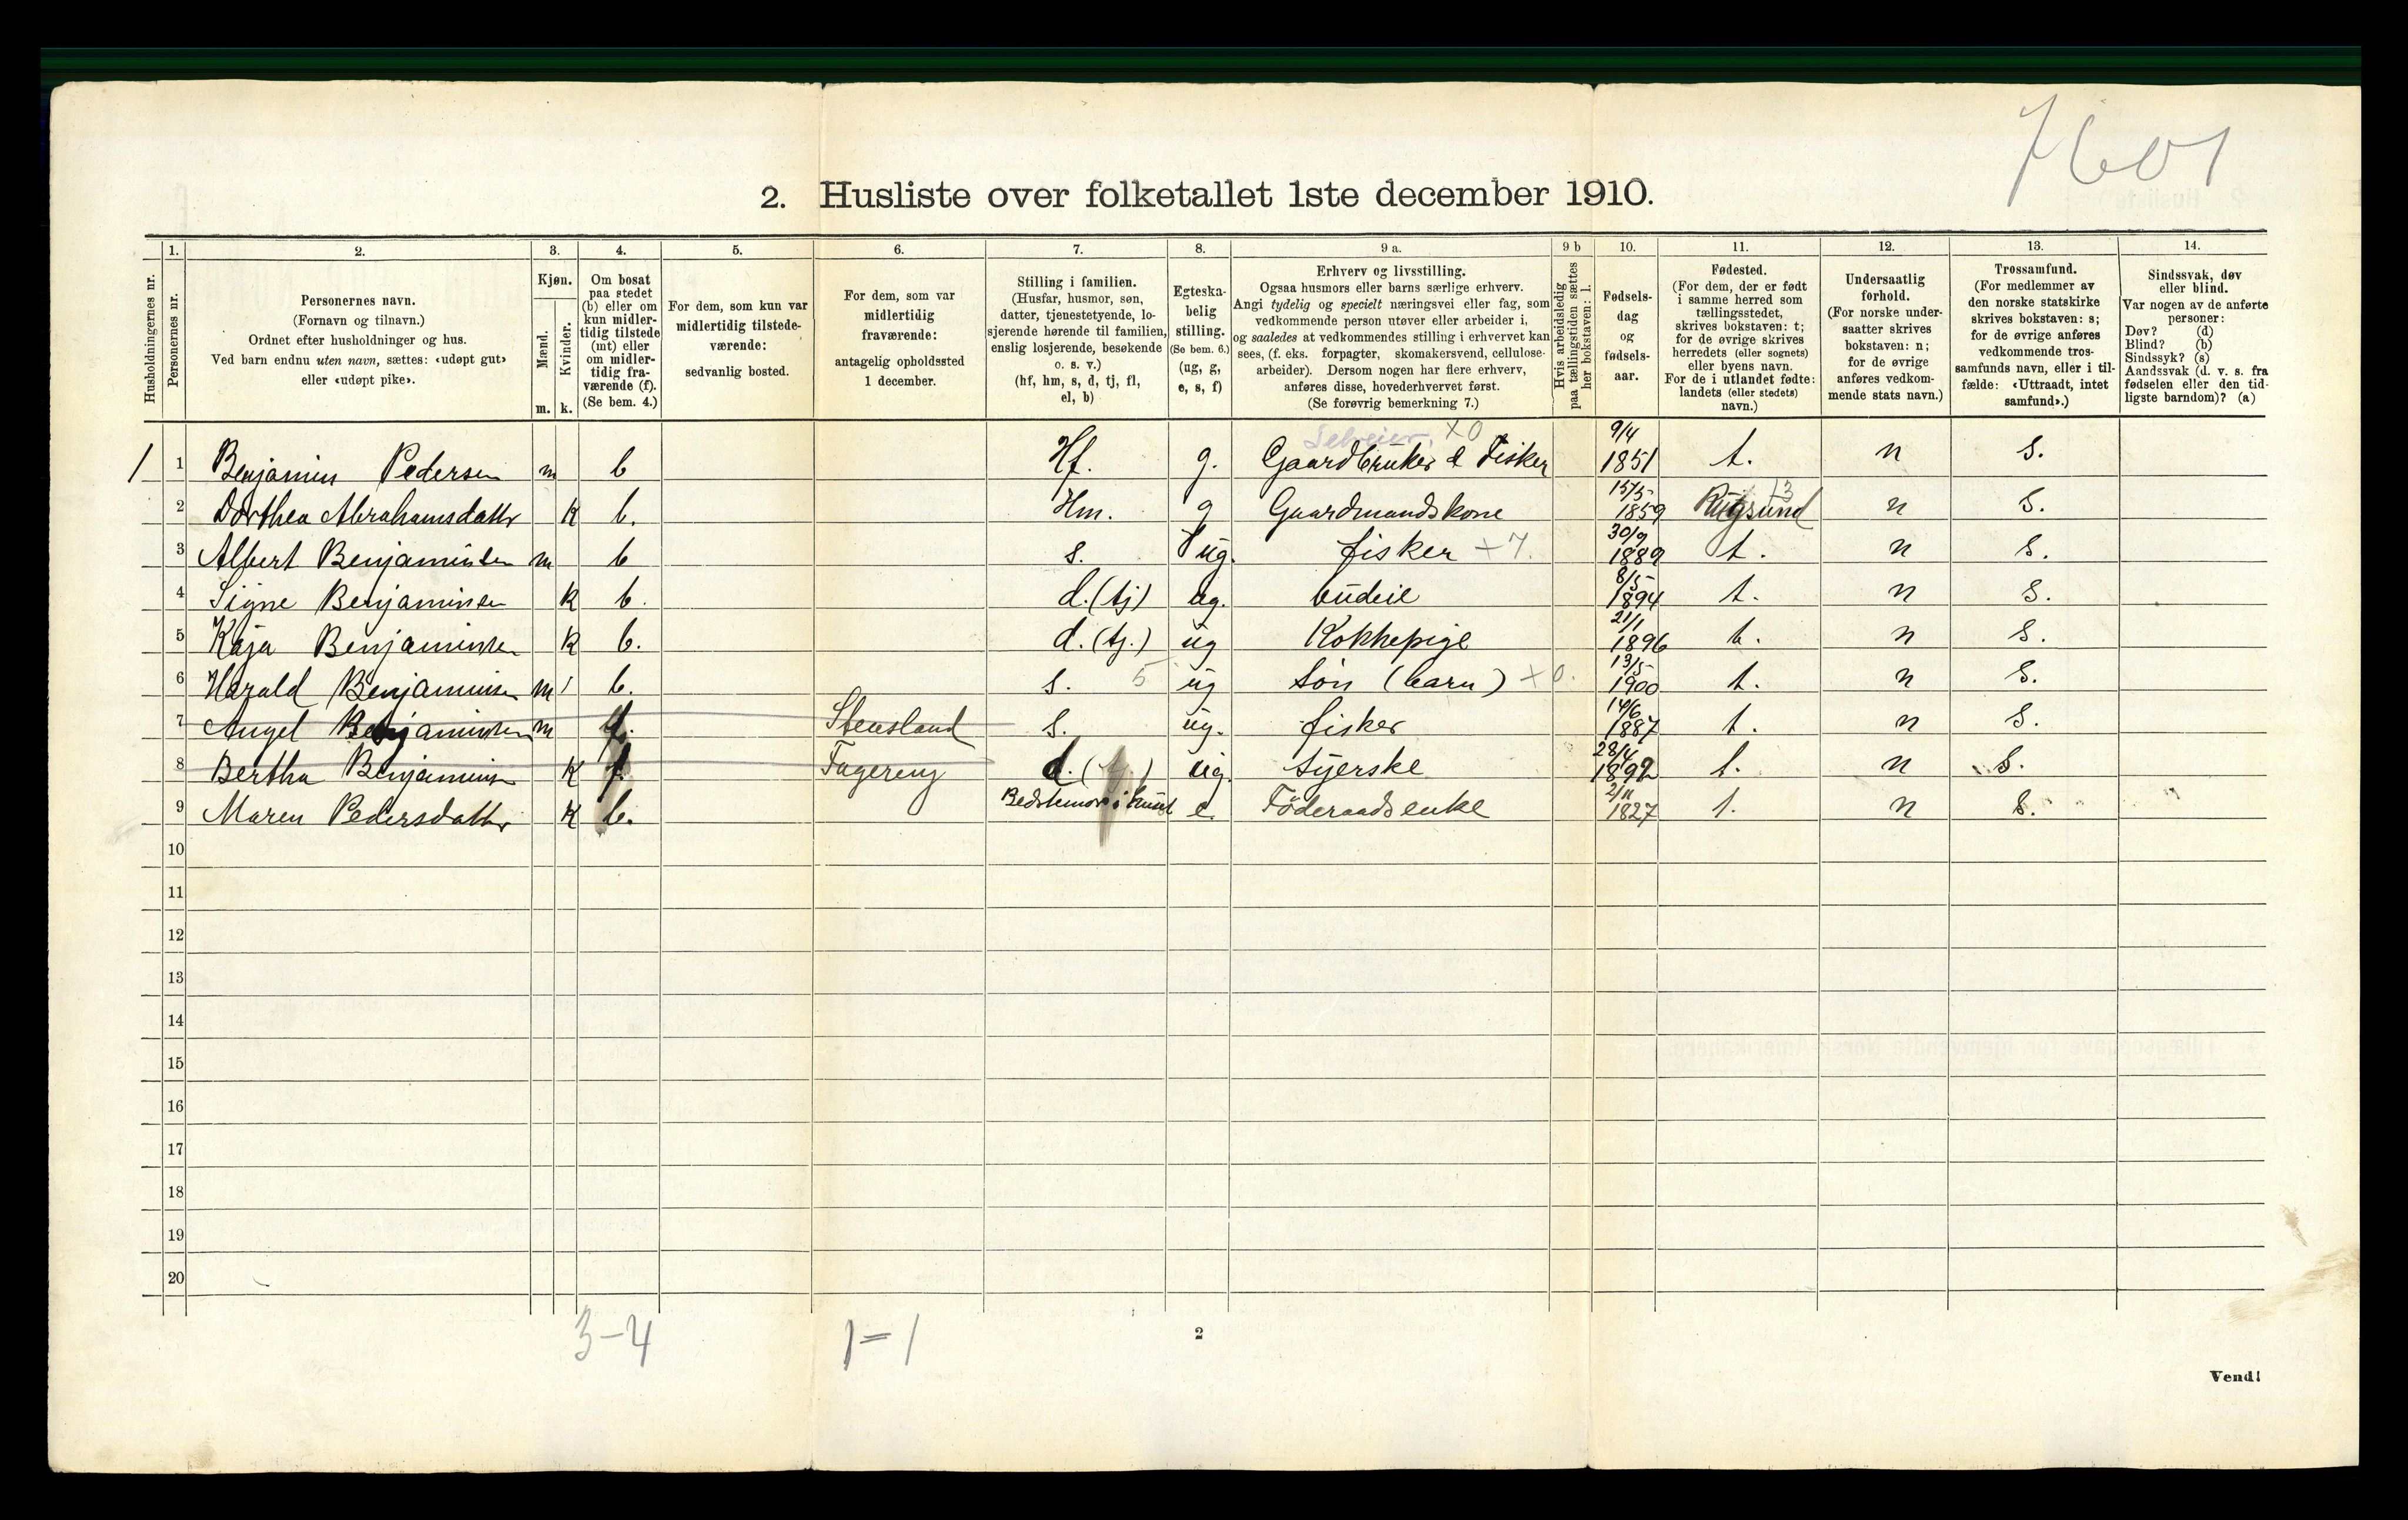 7601
2. Husliste over folketallet 1ste december 1910.
Husholdningernes nr.
1. Personernes nr.
2. Personernes navn.
(Fornavn og tilnavn.)
Ordnet efter husholdninger og hus.
Ved barn endnu uten navn, sættes: «udøpt gut»
eller «udøpt pike».
3. Kjøn.
Mænd. m.
Kvinder. k.
4. Om bosat
paa stedet
(b) eller om
kun midler-
tidig tilstede
(mt) eller
om midler-
tidig fra-
værende (f).
(Se bem. 4.)
5. For dem, som kun var
midlertidig tilstede-
værende:
sedvanlig bosted.
6. For dem, som var
midlertidig
fraværende:
antagelig opholdssted
1 december.
7. Stilling i familien.
(Husfar, husmor, søn,
datter, tjenestetyende, lo-
sjerende hørende til familien,
enslig losjerende, besøkende
o. s. v.)
(hf, hm, s, d, tj, fl,
el, b)
8. Egteska-
belig
stilling.
(Se bem. 6.)
(ug, g,
e, s, f)
9 a. Erhverv og livsstilling.
Ogsaa husmors eller barns særlige erhverv.
Angi tydelig og specielt næringsvei eller fag, som
vedkommende person utøver eller arbeider i,
og saaledes at vedkommendes stilling i erhvervet kan
sees, (f. eks. forpagter, skomakersvend, cellulose-
arbeider). Dersom nogen har flere erhverv,
anføres disse, hovederhvervet først.
(Se forøvrig bemerkning 7.)
9 b Hvis arbeidsledig
paa tællingstiden sættes
her bokstaven: l.
10. Fødsels-
dag
og
fødsels-
aar.
11. Fødested.
(For dem, der er født
i samme herred som
tællingsstedet,
skrives bokstaven: t;
for de øvrige skrives
herredets (eller sognets)
eller byens navn.
For de i utlandet fødte:
landets (eller stedets)
navn.)
12. Undersaatlig
forhold.
(For norske under-
saatter skrives
bokstaven: n;
for de øvrige
anføres vedkom-
mende stats navn.)
13. Trossamfund.
(For medlemmer av
den norske statskirke
skrives bokstaven: s;
for de øvrige anføres
vedkommende tros-
samfunds navn, eller i til-
fælde: «Uttraadt, intet
samfund».)
14. Sindssvak, døv
eller blind.
Var nogen av de anførte
personer:
Døv? (d)
Blind? (b)
Sindssyk? (s)
Aandssvak (d. v. s. fra
fødselen eller den tid-
ligste barndom)? (a)
Selveier. X0
1 1 Benjamin Pedersen m b Hf. g. Gaardbruker & Fisker 9/4 1851 t. n s.
2 Dorthea Abrahamsdattr k b. Hm. g Gaardmandskone 15/5 1859 Rugsund 13 n s.
3 Albert Benjaminsen m b s. ug. fisker +7. 30/9 1889 t. n s.
4 Signe Benjaminsen k b. d. (tj) ug. budeie 8/5 1894 t. n s.
5 Kaja Benjaminsen k b. d. (tj.) ug Kokkepige 21/1 1896 t. n s.
6 Harald Benjaminsen m b. s. 5 ug Søn (barn) X0. 13/5 1900 t. n s.
7 Angel Benjaminsen m f. Stensland s. ug. fisker 14/6 1887 t. n s.
8 Bertha Benjaminsen k f. Fagereng d. (tj.) ug. syerske 28/4 1892 t. n s.
9 Maren Pedersdattr k b. Bedstemor i huset e. Föderaadsenke 2/11 1827 t. n s.
10
11
12
13
14
15
16
17
18
19
20
3-4 1=1
2
Vend!